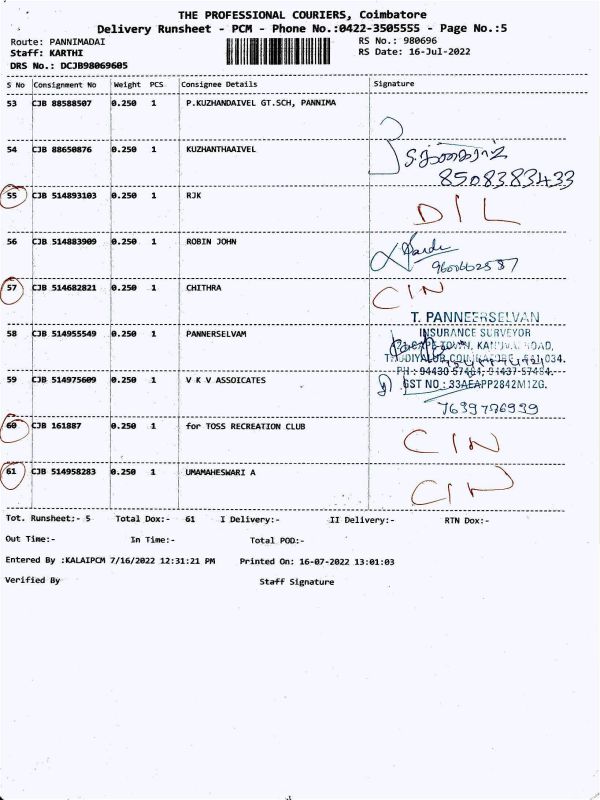 THE PROFESSIONAL COURIERS, Coimbatore
Delivery Runsheet - PCM - Phone No.:0422-3505555 - Page No.:5
Route: PANNIMADAI RS No.: 980696
Staff: KARTHI RS Date: 16-Jul-2022
DRS No.: DCJB98069605
S No Consignment No Weight PCS Consignee Details Signature
53 CJB 88588507 0.250 1 P.KUZHANDAIVEL GT.SCH, PANNIMA
54 CJB 88650876 0.250 1 KUZHANTHAAIVEL
8508383433
55 CJB 514893103 0.250 1 RJK DIL
56 CJB 514883909 0.250 1 ROBIN JOHN
9600662587
57 CJB 514682821 0.250 1 CHITHRA CIN
T. PANNEERSELVAN
INSURANCE SURVEYOR
58 CJB 514955549 0.250 1 PANNERSELVAM
59 CJB 514975609 0.250 1 V K V ASSOICATES
GST NO : 33AEAPP2842M1ZG.
7639776939
60 CJB 161887 0.250 1 for TOSS RECREATION CLUB CIN
61 CJB 514958283 0.250 1 UMAMAHESWARI A CIN
Tot. Runsheet:- 5 Total Dox:- 61 I Delivery:- II Delivery:- RTN Dox:-
Out Time:- In Time:- Total POD:-
Entered By :KALAIPCM 7/16/2022 12:31:21 PM Printed On: 16-07-2022 13:01:03
Verified By Staff Signature